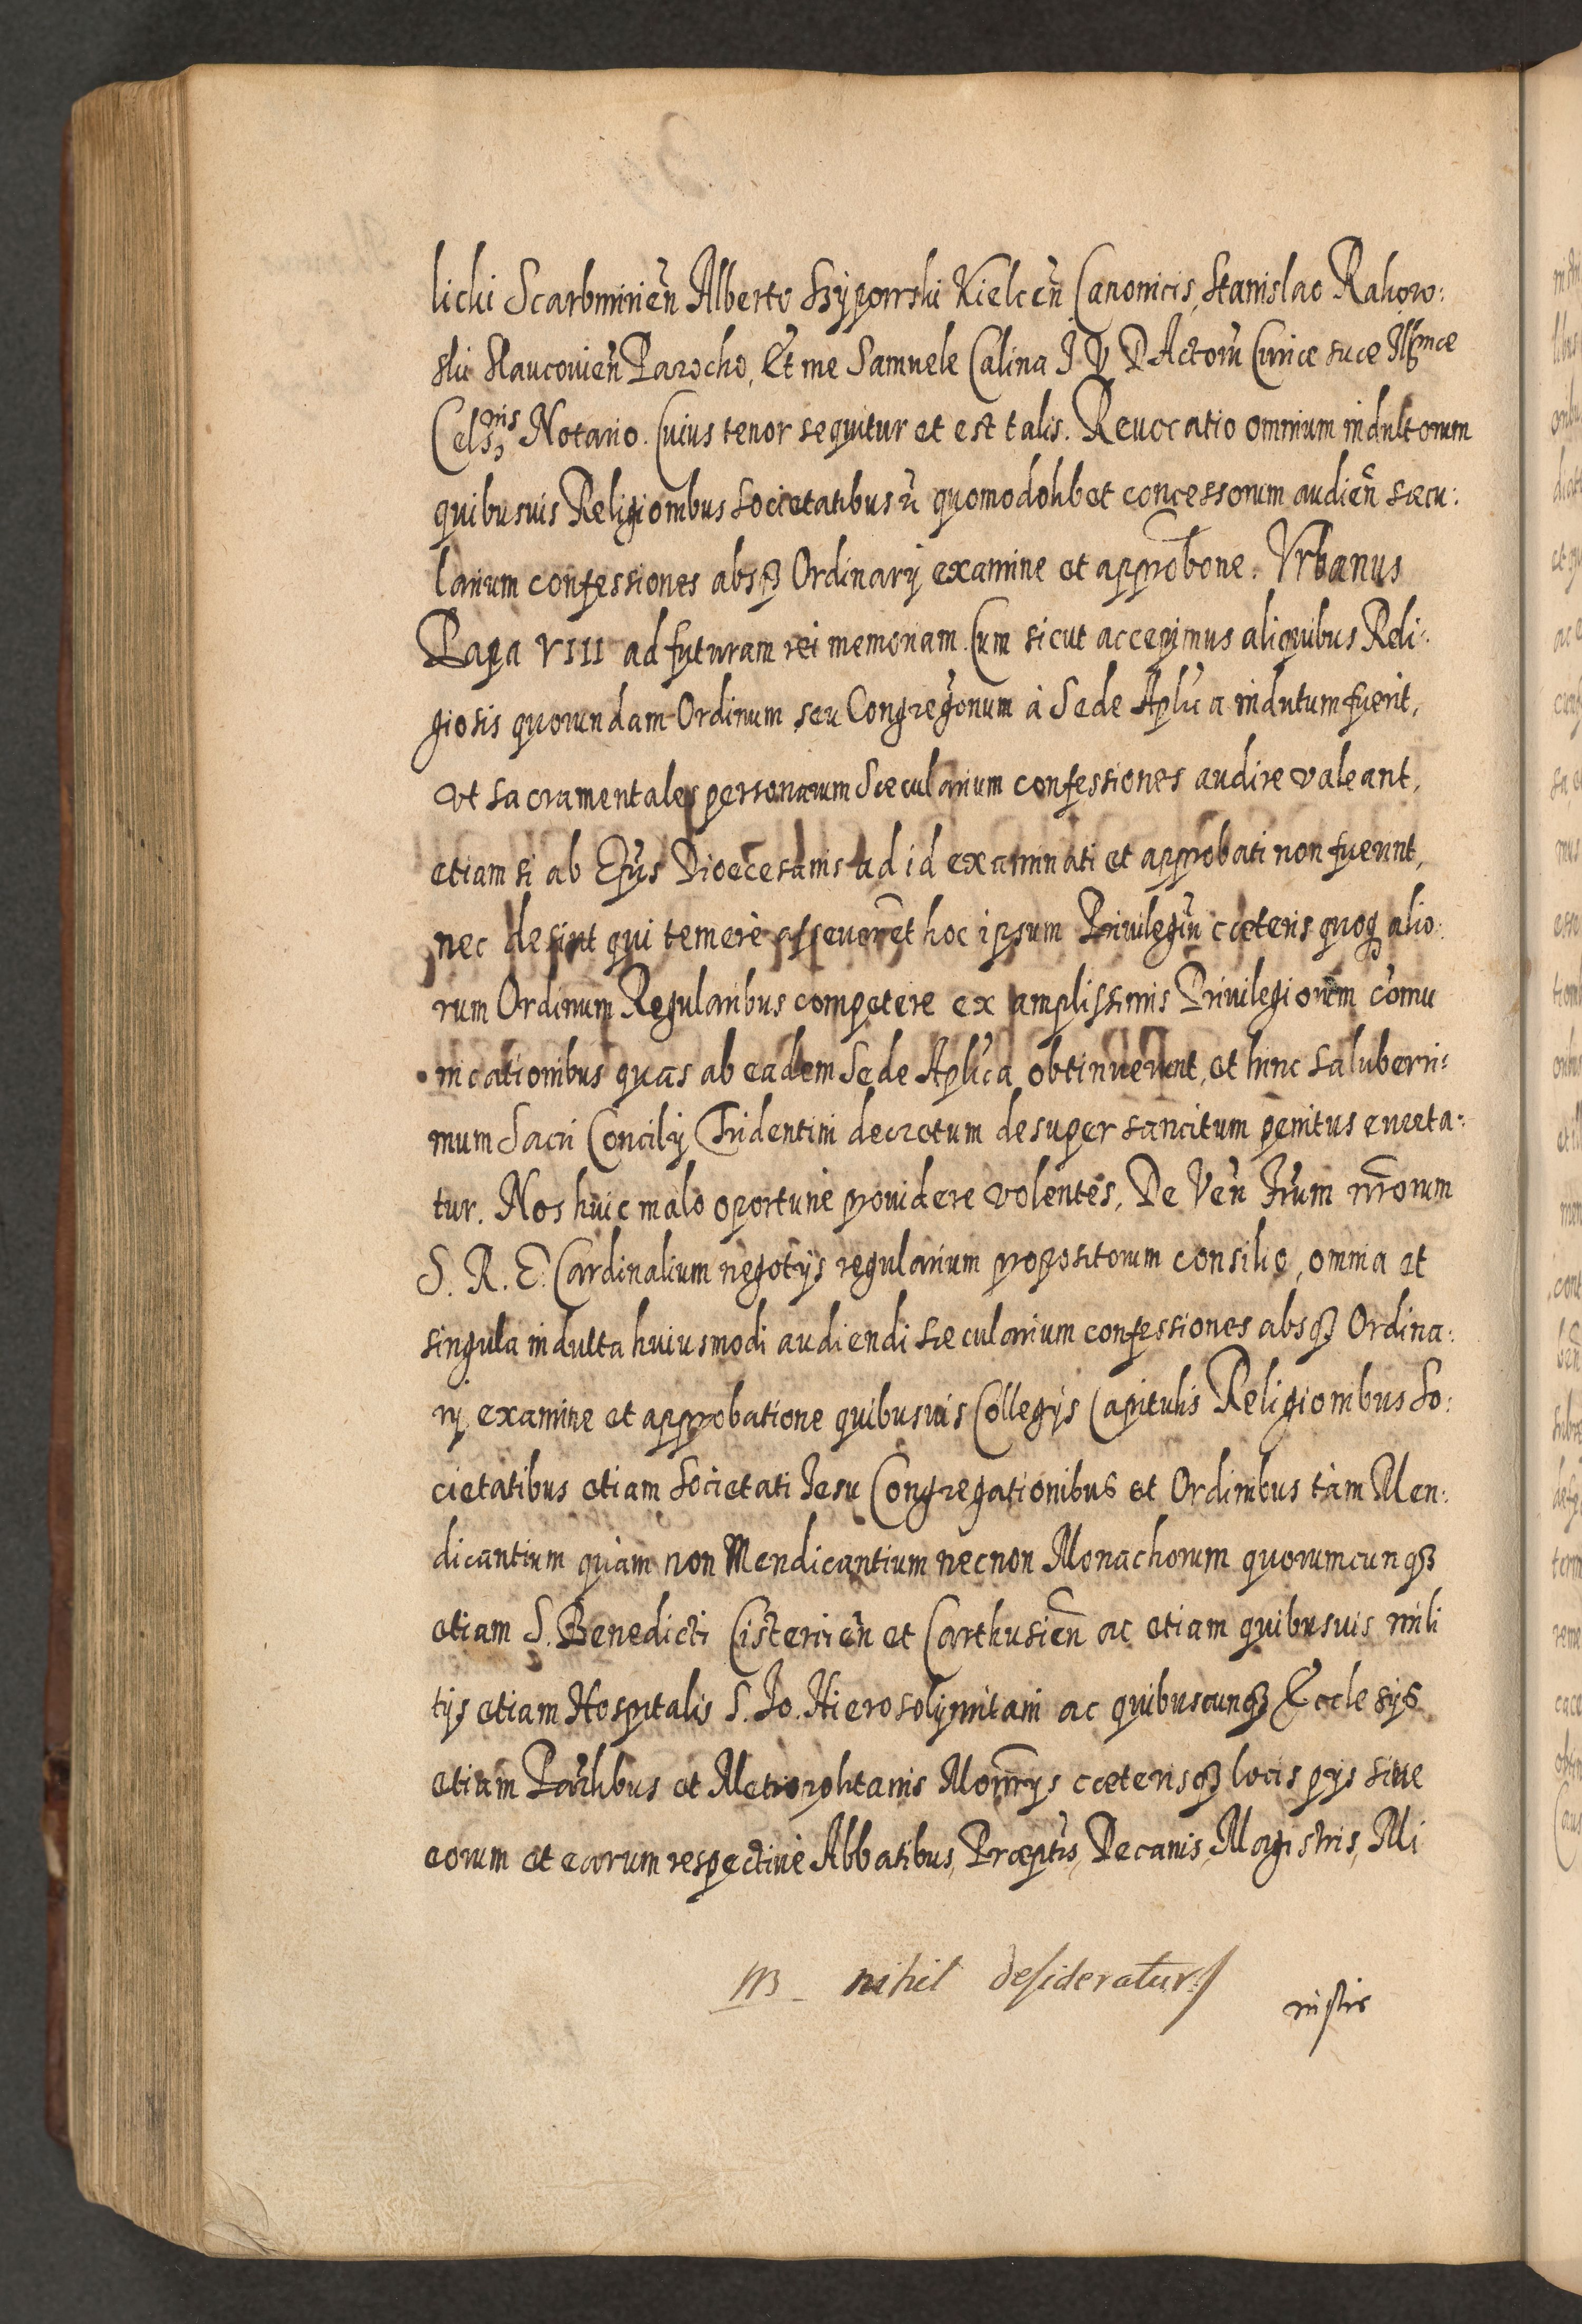 licki Scarbmirien̄ Alberto Szÿpowski Kielcen̄ Canonicis, Stanislao Rakow:
ski Slaucouien̄ Parocho, Et me Samuele Calina J V D Actorū Curiæ suæ Illmæ
Celsnis Notario. Cuius tenor sequitur et est talis. Reuocatio omnium indultorum
quibusuis Religionibus Societatibus ū quomodolibet concessorum audien̄ sæcu:
larium confessiones absqȝ Ordinarÿ examine et approb̄one. Vrbanus
Papa VIII ad futuram rei memoriam. Cum sicut accepimus aliquibus Reli:
giosis quorundam Ordinum seu Congregōnum à Sede Aplīca indutum fuerit,
vt sacramentales personarum Sæcularium confessiones audire valeant,
etiam si ab Ep̄ÿs Diœcesanis ad id examinati et approbati non fuerint,
nec desint qui temerè asseuerēt hoc ipsum Priuilegiū cæteris quoqȝ alio:
rum Ordinum Regularibus competere ex amplissimis Priuilegiorum cōmu
nicationibus quas ab eadem Sede Aplīca obtinuerunt, et hinc saluberri:
mum Sacri Concilÿ Tridentini decretum desuper sancitum penitus euerta:
tur. Nos huic malo oportunè prouidere volentes, De Ven̄ Fr̄um nr̄orum
S. R. E. Cardinalium negotÿs regularium propositorum consilio, omnia et
singula indulta huiusmodi audiendi sæcularium confessiones absqȝ Ordina:
rÿ examine et approbatione quibusuis Collegÿs Capitulis Religionibus So:
cietatibus etiam Societati Jesu Congregationibus et Ordinibus tàm Men:
dicantium quàm non Mendicantium necnon Monachorum quorumcunqȝ
etiam S. Benedicti Cistercien̄ et Carthusien̄ ac etiam quibusuis mili
tÿs etiam Hospitalis S. Jo. Hierosolÿmitani ac quibuscunqȝ Ecclesÿs
etiam Pār̄libus et Metropolitanis Mon̄rÿs cæterisqȝ locis pÿs siue
eorum et earum respectiuè Abbatibus, Præptīs, Decanis, Magistris, Mi
NB – nihil desideratur
nistris